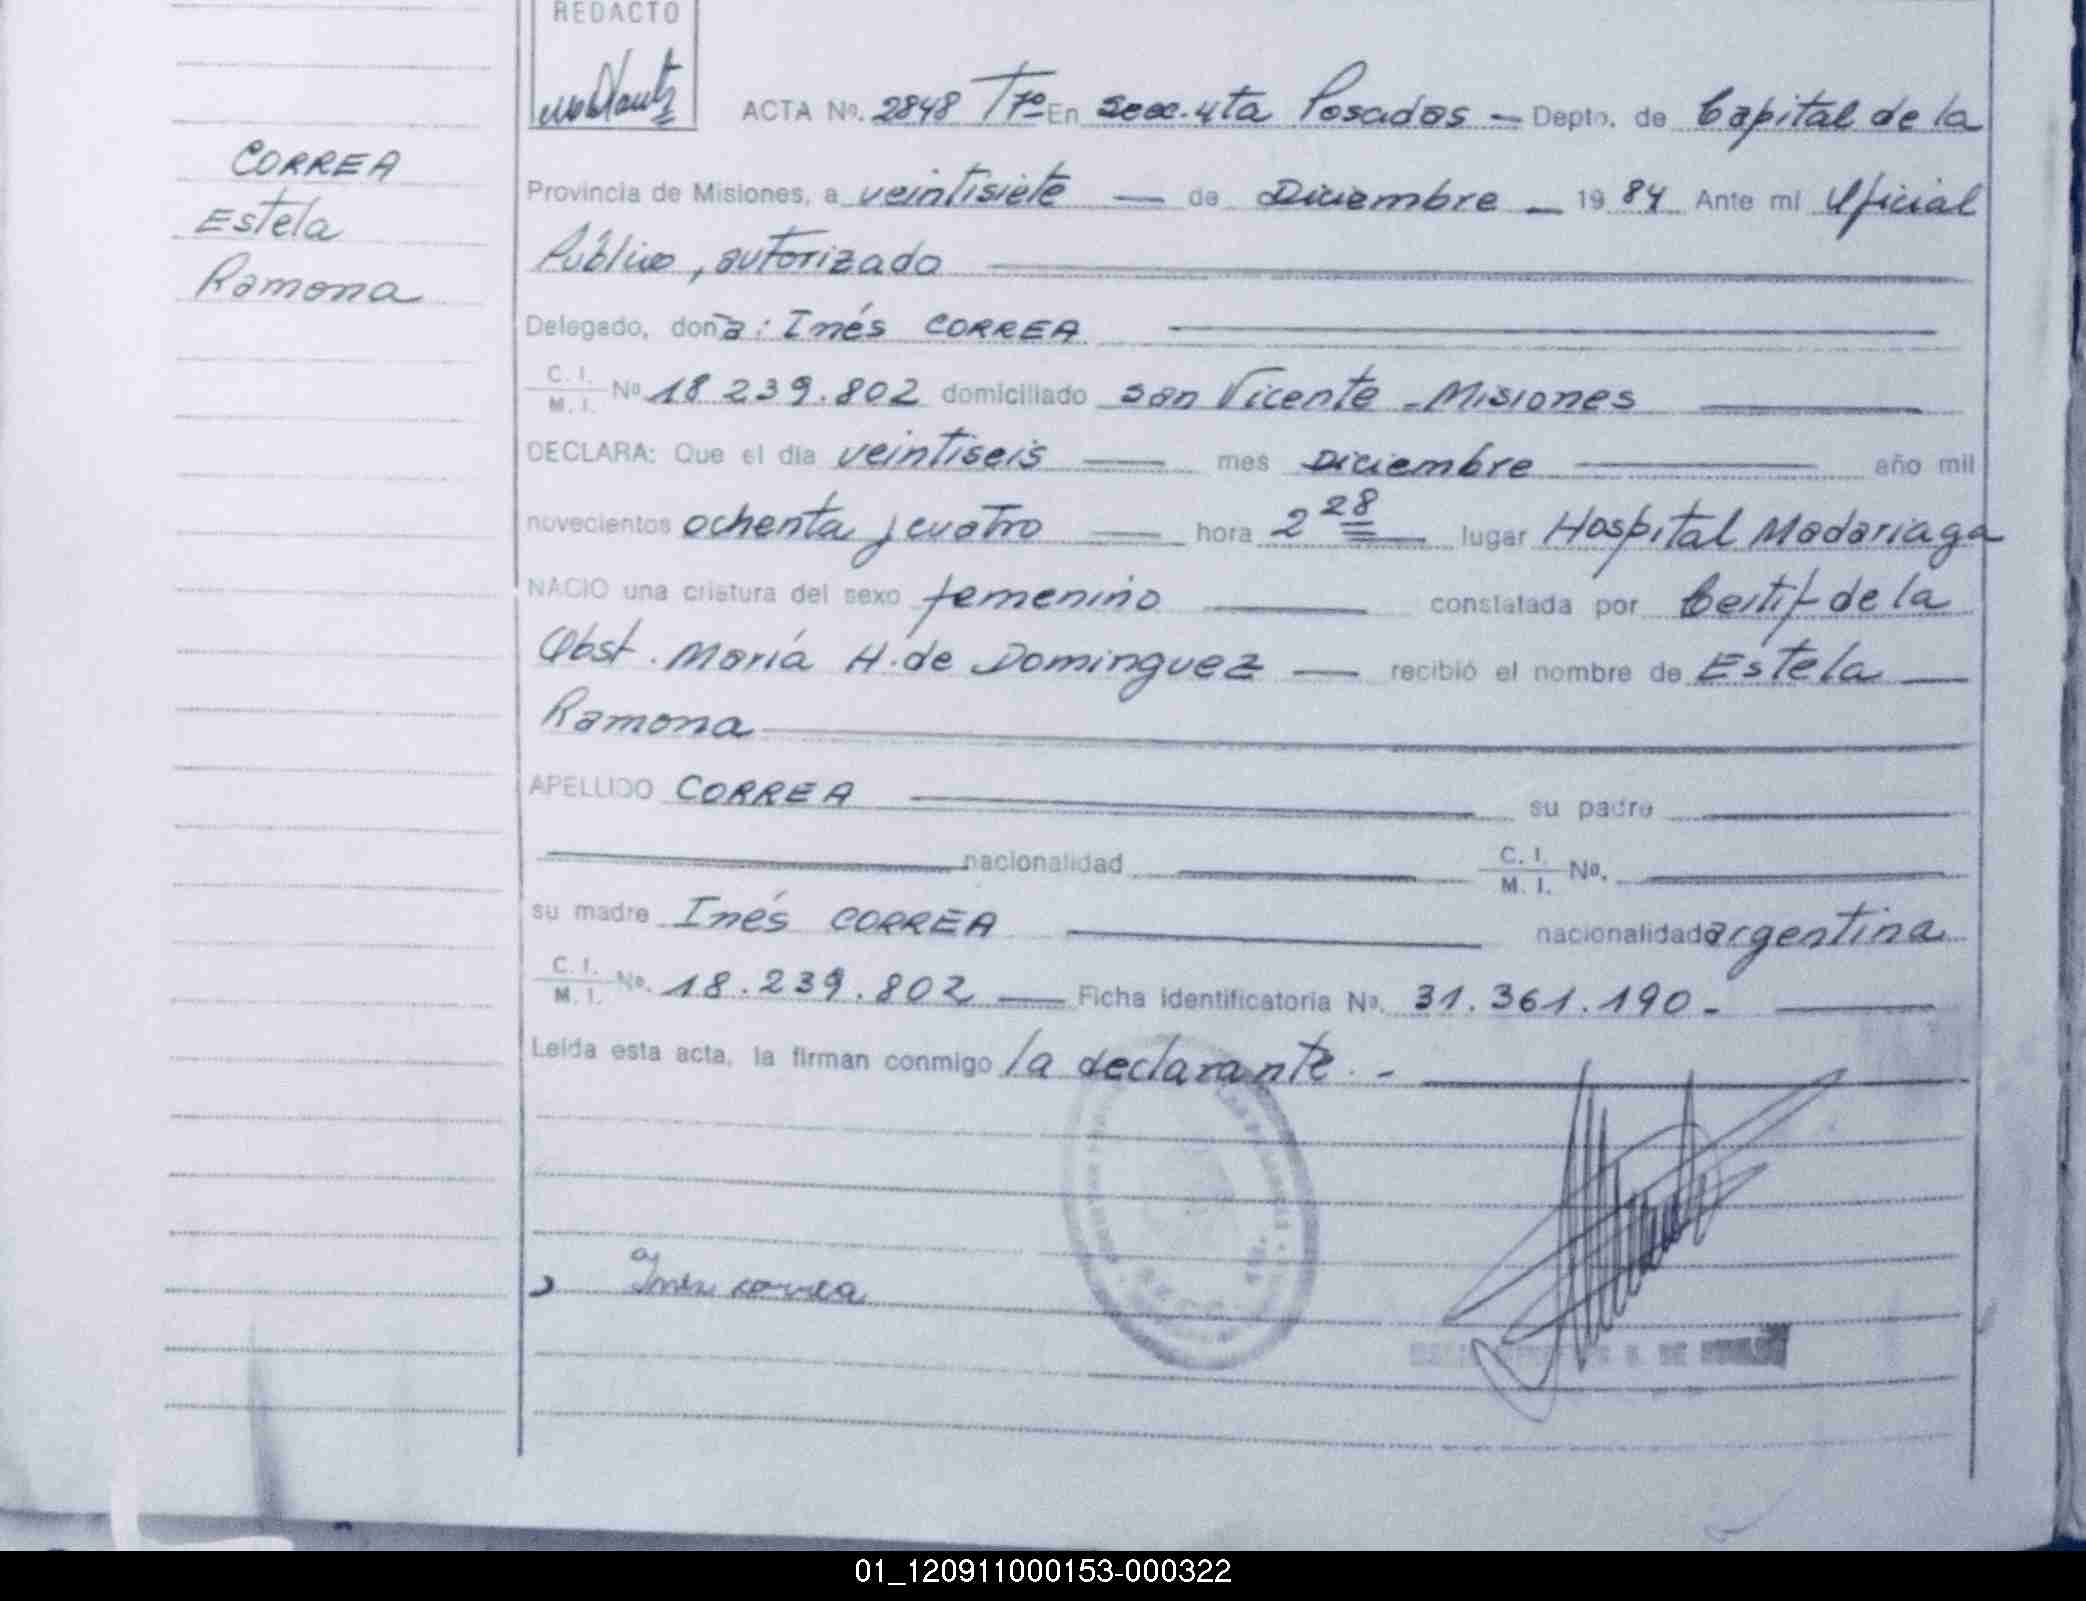 REDACTO
CORREA
Estela
Ramona
ACTA Nº. 2848 Tº 7º En secc. 4ta Posadas — Depto. de Capital de la
Provincia de Misiones, a veintisiete — de Diciembre — 19 84 Ante mi Oficial
Público, autorizado
Delegado, doña: Inés CORREA
C. I.
M. I. Nº 18.239.802 domiciliado San Vicente - Misiones
DECLARA: Que el día veintiseis — mes Diciembre — año mil
novecientos ochenta y cuatro — hora 2 28 — lugar Hospital Madariaga
NACIO una criatura del sexo femenino — constatada por Certif. de la
Obst. María H. de Dominguez — recibió el nombre de Estela —
Ramona
APELLIDO CORREA — su padre —
— nacionalidad — C. I.
M. I. No. —
su madre Inés CORREA — nacionalidad argentina
C. I.
M. I. No. 18.239.802 — Ficha identificatoria Nº. 31.361.190.-
Leída esta acta, la firman conmigo la declarante. -
Inés correa
01_120911000153-000322